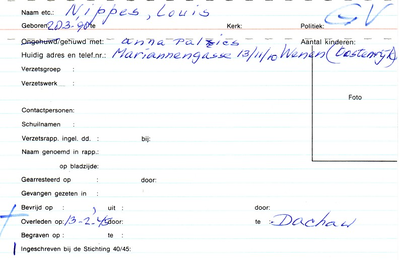 Naam etc.: Nippes, Louis GV
Geboren: 20.3-90 te Kerk: Politiek:
Ongehuwd/gehuwd met: anna Aantal kinderen:
Huidig adres en telef.nr.: Mariannengasse 13/11/10 Wenen (Oostenrijk)
Verzetsgroep :
Verzetswerk :
Foto
Contactpersonen:
Schuilnaam :
Verzetsrapp. ingel. dd. : bij:
Naam genoemd in rapp.:
op bladzijde:
Gearresteerd op : door:
Gevangen gezeten in :
Bevrijd op : , uit : door:
Overleden op: 13-2-45 door: te Dachau
Begraven op : te :
Ingeschreven bij de Stichting 40/45: